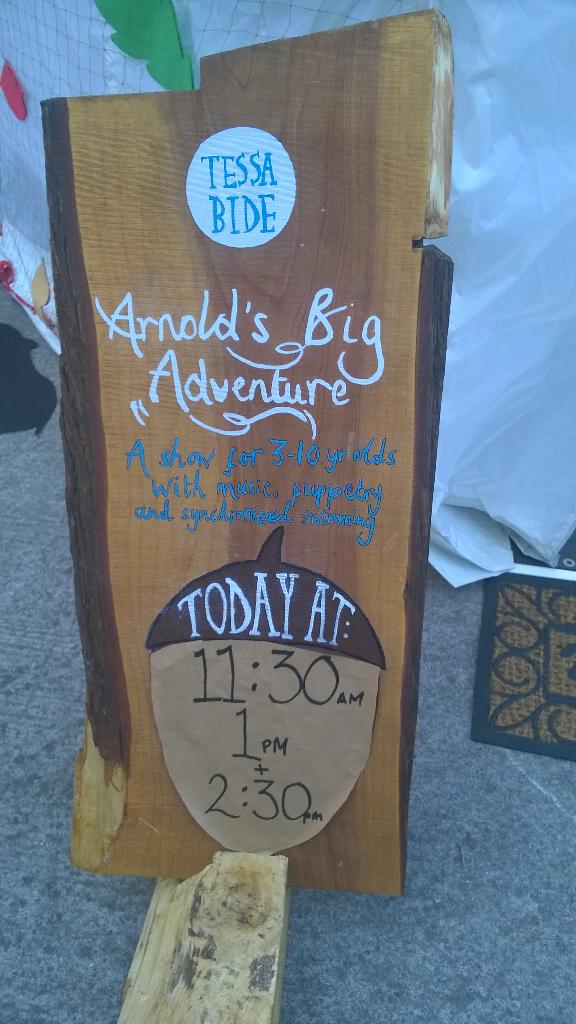 TESSA
BIDE
Arnold's Big
Adventure
A show for 3-10 yr olds
with music, puppetry
and synchronized swimming
TODAY AT:
11:30 AM
1 PM
+
2:30 pm